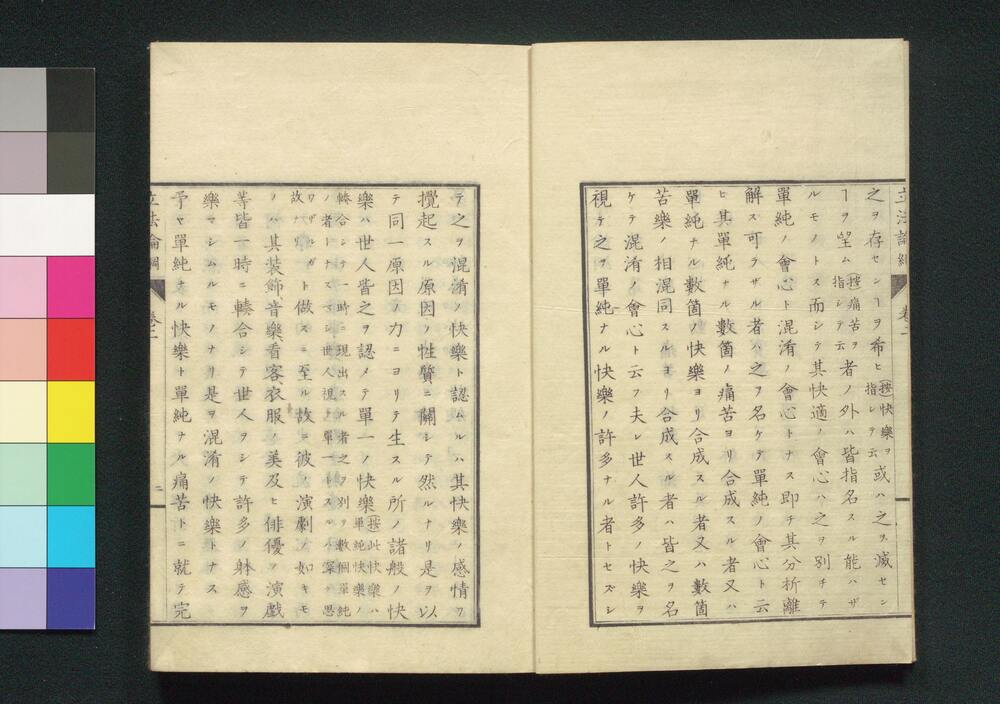 立法論綱 卷二
之ヲ存センヿヲ希ヒ按快樂ヲ指シテ云或ハ之ヲ滅セン
ヿヲ望ム按痛苦ヲ指シテ云者ノ外ハ皆指名スル能ハザ
ルモノトス而シテ其快適ノ會心ハ之ヲ別チテ
單純ノ會心ト混淆ノ會心トナス卽チ其分析離
解ス可ラザル者ハ之ヲ名ケテ單純ノ會心ト云
ヒ其單純ナル數箇ノ痛苦ヨリ合成スル者又ハ
單純ナル數箇ノ快樂ヨリ合成スル者又ハ數箇
苦樂ノ相混同スルヨリ合成スル者ハ皆之ヲ名
ケテ混淆ノ會心ト云フ夫レ世人許多ノ快樂ヲ
視テ之ヲ單純ナル快樂ノ許多ナル者トセズシ
テ之ヲ混淆ノ快樂ト認ムルハ其快樂ノ感情ヲ
攪起スル原因ノ性質ニ關シテ然ルナリ是ヲ以
テ同一原因ノ力ニヨリテ生スル所ノ諸般ノ快
樂ハ世人皆之ヲ認メテ單一ノ快樂按此快樂ハ單純快樂ノ
輳合シテ一時ニ現出スル者之ヲ別ヲ數個單純
ノ者トナスマシ世人視テ單一トスルハ深ク思
ワザルガ故ナリト做スニ至ル故ニ彼ノ演劇ノ如キモ
ノハ其装飾音樂看客衣服ノ美及ヒ俳優ヲ演戲
等皆一時ニ輳合シテ世人ヲシテ許多ノ躰感ヲ
樂マシムルモノナリ是ヲ混淆ノ快樂トナス
予ヤ單純ナル快樂ト單純ナル痛苦トニ就テ完
立法論綱 卷二 二